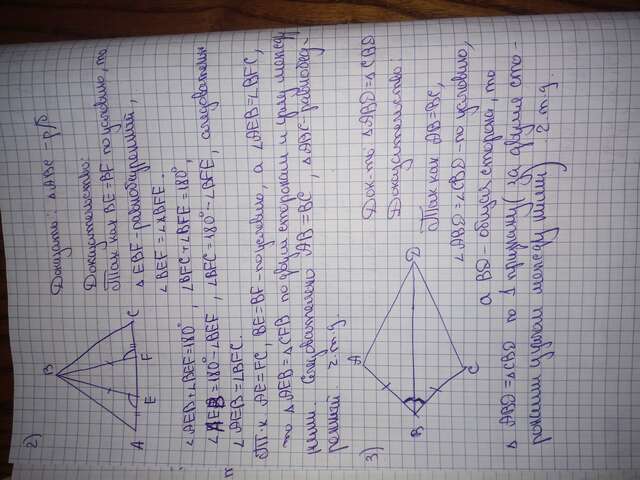 2)
B
A E F C
Доказать: △ ABC - р/б
Доказательство:
Так как BE=BF по условию, то
△ EBF - равнобедренный,
∠BEF = ∠BFE.
∠AEB+∠BEF=180°, ∠BFC+∠BFE=180°,
∠AEB=180°-∠BEF, ∠BFC=180°-∠BFE, следовательно
∠AEB=∠BFC.
Т.к AE=FC, BE=BF - по условию, а ∠AEB=∠BFC,
то △ AEB=△ CFB по двум сторонам и углу между
ними. Следовательно AB=BC, △ABC - равнобед-
ренный. ч.т.д.
3)
A
B D
C
Док-ть: △ABD=△CBD
Доказательство:
Так как AB=BC,
∠ABD=∠CBD - по условию,
а BD - общая сторона, то
△ ABD=△CBD по 1 признаку (за двумя сто-
ронами и углом между ними) ч.т.д.